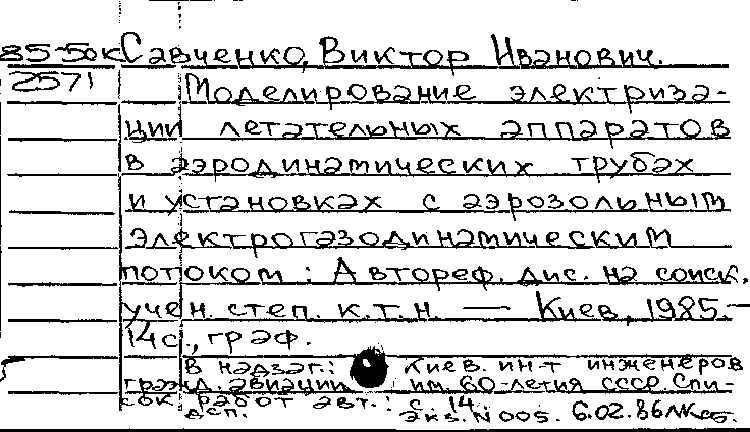 85-50к Савченко, Виктор Иванович.
2571 Моделирование электриза-
ции летательных аппаратов
в аэродинамических трубах
и установках с аэрозольным
электрогазодинамическим
потоком : Автореф. дис. на соиск.
учен. степ. к.т.н. — Киев, 1985.—
14с., граф.
В надзаг.: Киев. ин-т инженеров
гражд. авиации им. 60-летия СССР. Спи-
сок работ авт.: с. 14.
дсп. Экз. N 005. 6.02.86